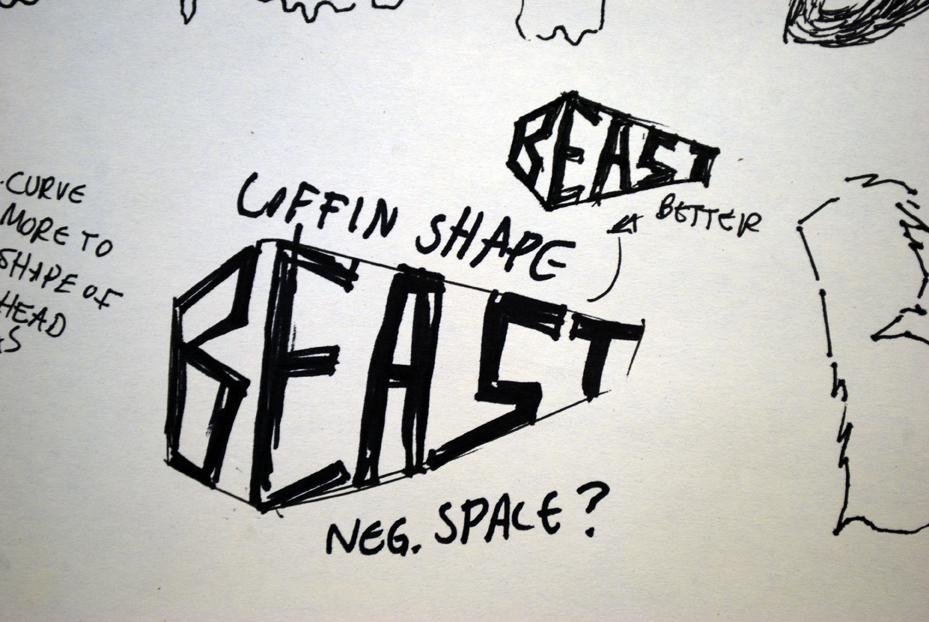 BEAST
BETTER
CURVE
MORE TO
SHAPE OF
HEAD
COFFIN SHAPE
BEAST
NEG. SPACE?